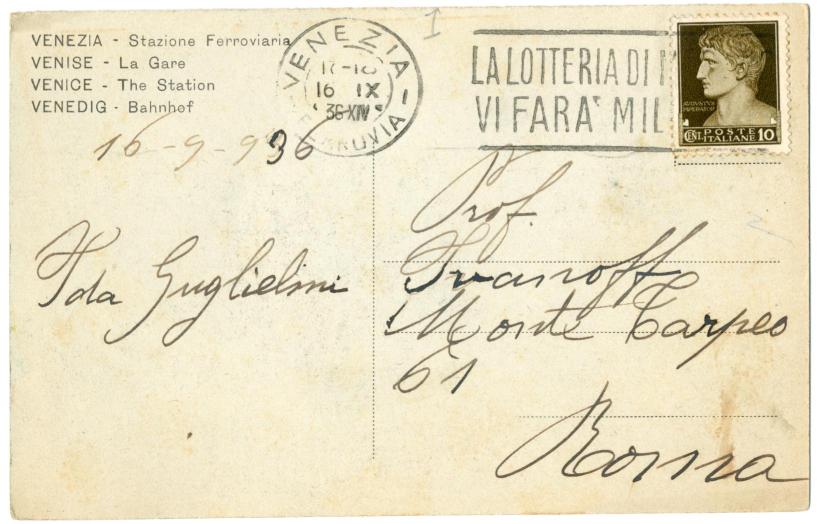 VENEZIA - Stazione Ferroviaria
VENISE - La Gare
VENICE - The Station
VENEDIG - Bahnhof
VENEZIA
17-18
16 IX
36-XIV
FERROVIA
LA LOTTERIA DI
VI FARA' MIL
AVGVSTVS
IMPERATOR
CENT. POSTE ITALIANE 10
16-9-936
Ida Guglielmi
Prof.
Ivanoff
Monte Tarpeo
61
Roma